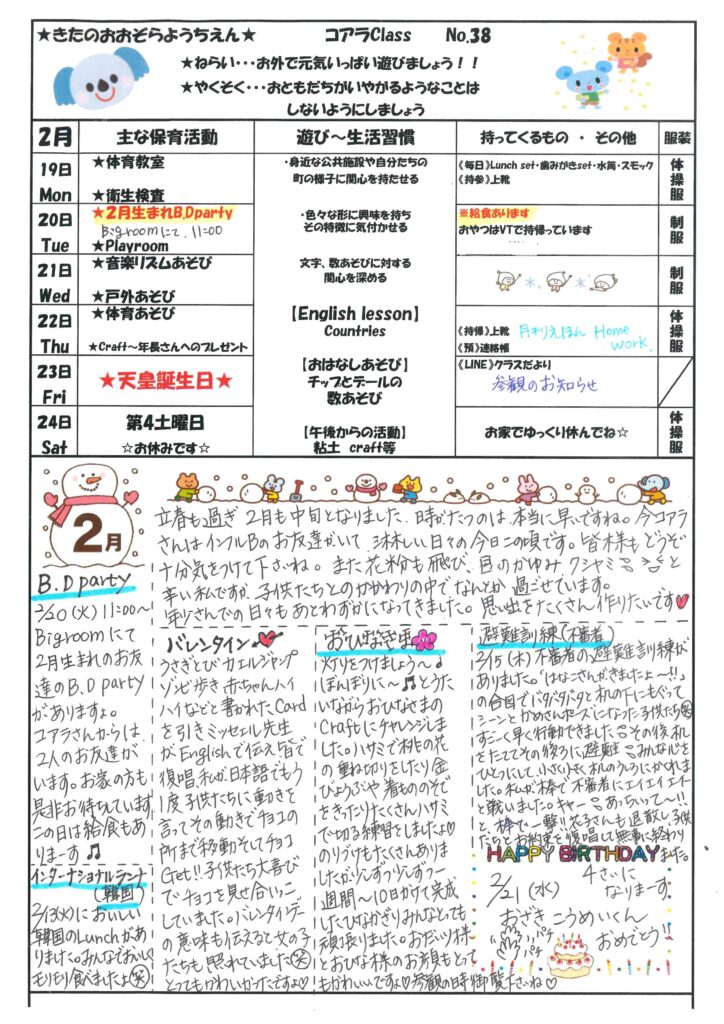 ★きたのおおぞらようちえん★ コアラClass No.38
★ねらい・・・お外で元気いっぱい遊びましょう！！
★やくそく・・・おともだちがいやがるようなことは
しないようにしましょう
2月 主な保育活動 遊び～生活習慣 持ってくるもの ・ その他 服装
19日 Mon
★体育教室
★衛生検査
・身近な公共施設や自分たちの
町の様子に関心を持たせる
《毎日》Lunch set・歯みがきset・水筒・スモック
《持参》上靴
体操服
20日 Tue
★2月生まれB.Dparty
Bigroomにて 11:00
★Playroom
・色々な形に興味を持ち
その特徴に気付かせる
※給食あります
おやつはVTで持帰っています
制服
21日 Wed
★音楽リズムあそび
★戸外あそび
文字、数あそびに対する
関心を深める
制服
22日 Thu
★体育あそび
★Craft～年長さんへのプレゼント
【English lesson】
Countries
《持帰》上靴 月刊えほん Home
《預》連絡帳 Work.
体操服
23日 Fri
★天皇誕生日★
【おはなしあそび】
チップとデールの
数あそび
《LINE》クラスだより
参観のお知らせ
24日 Sat
第4土曜日
☆お休みです☆
【午後からの活動】
粘土 craft等
お家でゆっくり休んでね☆
体操服
2月
立春も過ぎ 2月も中旬となりました。時がたつのは本当に早いですね。今コアラ
さんはインフルBのお友達がいて 淋しい日々の今日この頃です。皆様もどうぞ
十分気をつけて下さいね。また花粉も飛び、目のかゆみ クシャミ と
辛い私ですが、子供たちとのかかわりの中でなんとか過ごせています。
年少さんでの日々もあとわずかになってきました。思い出をたくさん作りたいです♥
B.D party
2/20(火)11:00～
Bigroomにて
2月生まれのお友
達のB.D party
がありますよ。
コアラさんからは、
2人のお友達が
います。お家の方も
是非お待ちしています
この日は給食もあ
りまーす♫
インターナショナルランチ
(韓国)
2/13(火)においしい
韓国のLunchがあ
りました。みんなでおいしく
モリモリ食べましたよ(笑)
バレンタイン
うさぎとび カエルジャンプ
ゾンビ歩き 赤ちゃんハイ
ハイなどと書かれたCard
を引きミッセェル先生
がEnglishで伝え皆で
復唱。私が日本語でもう
1度子供たちに動きを
言ってその動きでチョコの
所まで移動そしてチョコ
Get!!子供たち大喜び
でチョコを見せ合いっこ
していました。バレンタインデー
の意味も伝えると女の子
たちも照れていました(笑)
とってもかわいかったですよ♡
おひなさま
灯りをつけましょう～♩
ぼんぼりに～♫とうた
いながらおひなさまの
Craftにチャレンジしま
した。ハサミで桃の花
の重ね切りをしたり金
びょうぶや着もののそで
をきったりたくさんハサミ
で切る練習をしましたよ♡
のりづけもたくさんありま
したが少しずつ少しずつ一
週間～10日かけて完成
したひなかざりみんなとっても
頑張りました。おだいり様
とおひな様のお顔もとって
もかわいいですよ♡参観の時御覧下さいね♡
避難訓練(不審者)
2/15(木)不審者の避難訓練が
ありました。「はなこさんがきましたよー!!」
の合図でバタバタバタと机の下にもぐって
シーンとかめさんポーズになった子供たち(笑)
すごく早く行動できました。その後机
をたててその後ろに避難 みんな心を
ひとつにして小さい小さく机のうしろにかくれまし
た。私が棒で不審者にエイエイエイー
と戦いました。キャー あっちいってー!!
と、棒で一撃 も退散し子供
たちとお約束を復唱して無事に終わり
ました。
HAPPY BIRTHDAY
2/21(水) 4さいに
なりまーす
おざき こうめいくん
パチパチ おめでとう